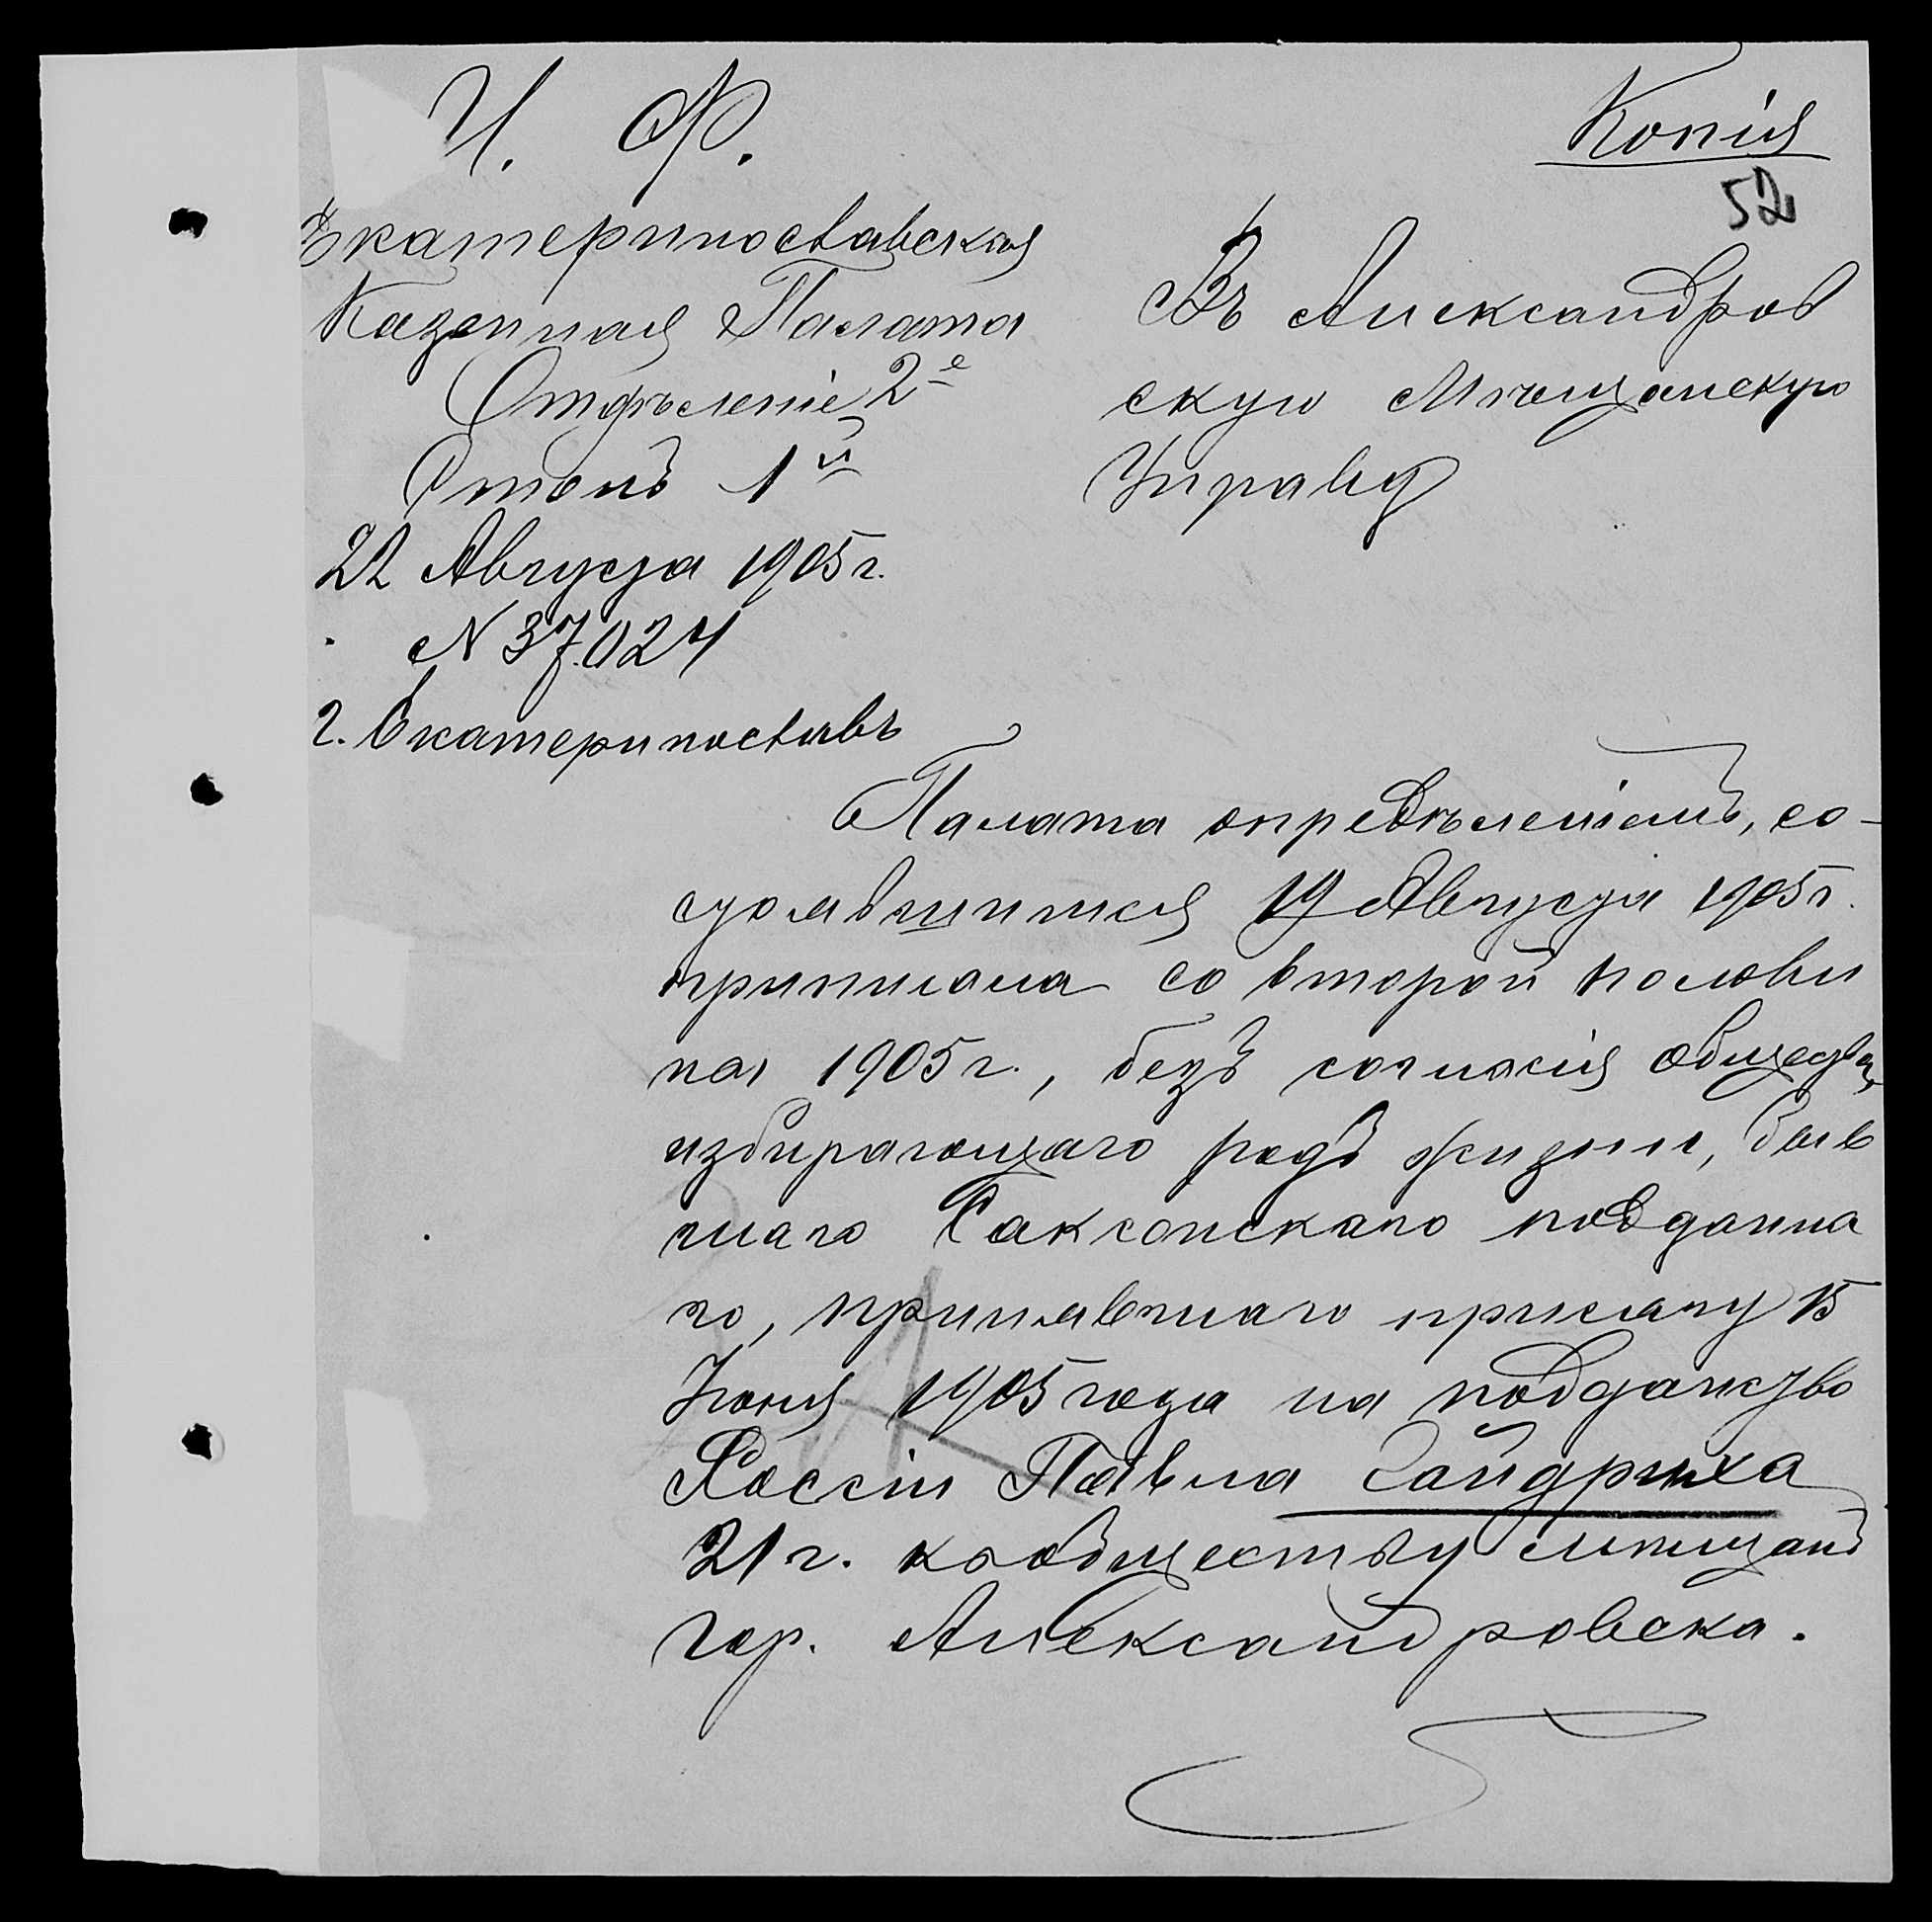 М. Ф.
Копія
52
Екатеринославская
Казенная Палата
Отдѣленіе 2е
Столъ 1й
22 Августа 1905 г.
N 37.024
г. Екатеринославъ
Въ Александров
скую Мѣщанскую
Управу
Палата опредѣленіемъ, со-
стоявшимся 19 Августа 1905 г.
причислила со второй полови
ны 1905 г., безъ согласія общества,
избирающаго родъ жизни, быв
шаго Саксонскаго поддана
го, принявшаго присягу 15
Іюня 1905 года на подданство
Россіи Павла Гайдриха
21 г. къ обществу мѣщанъ
гор. Александровска.